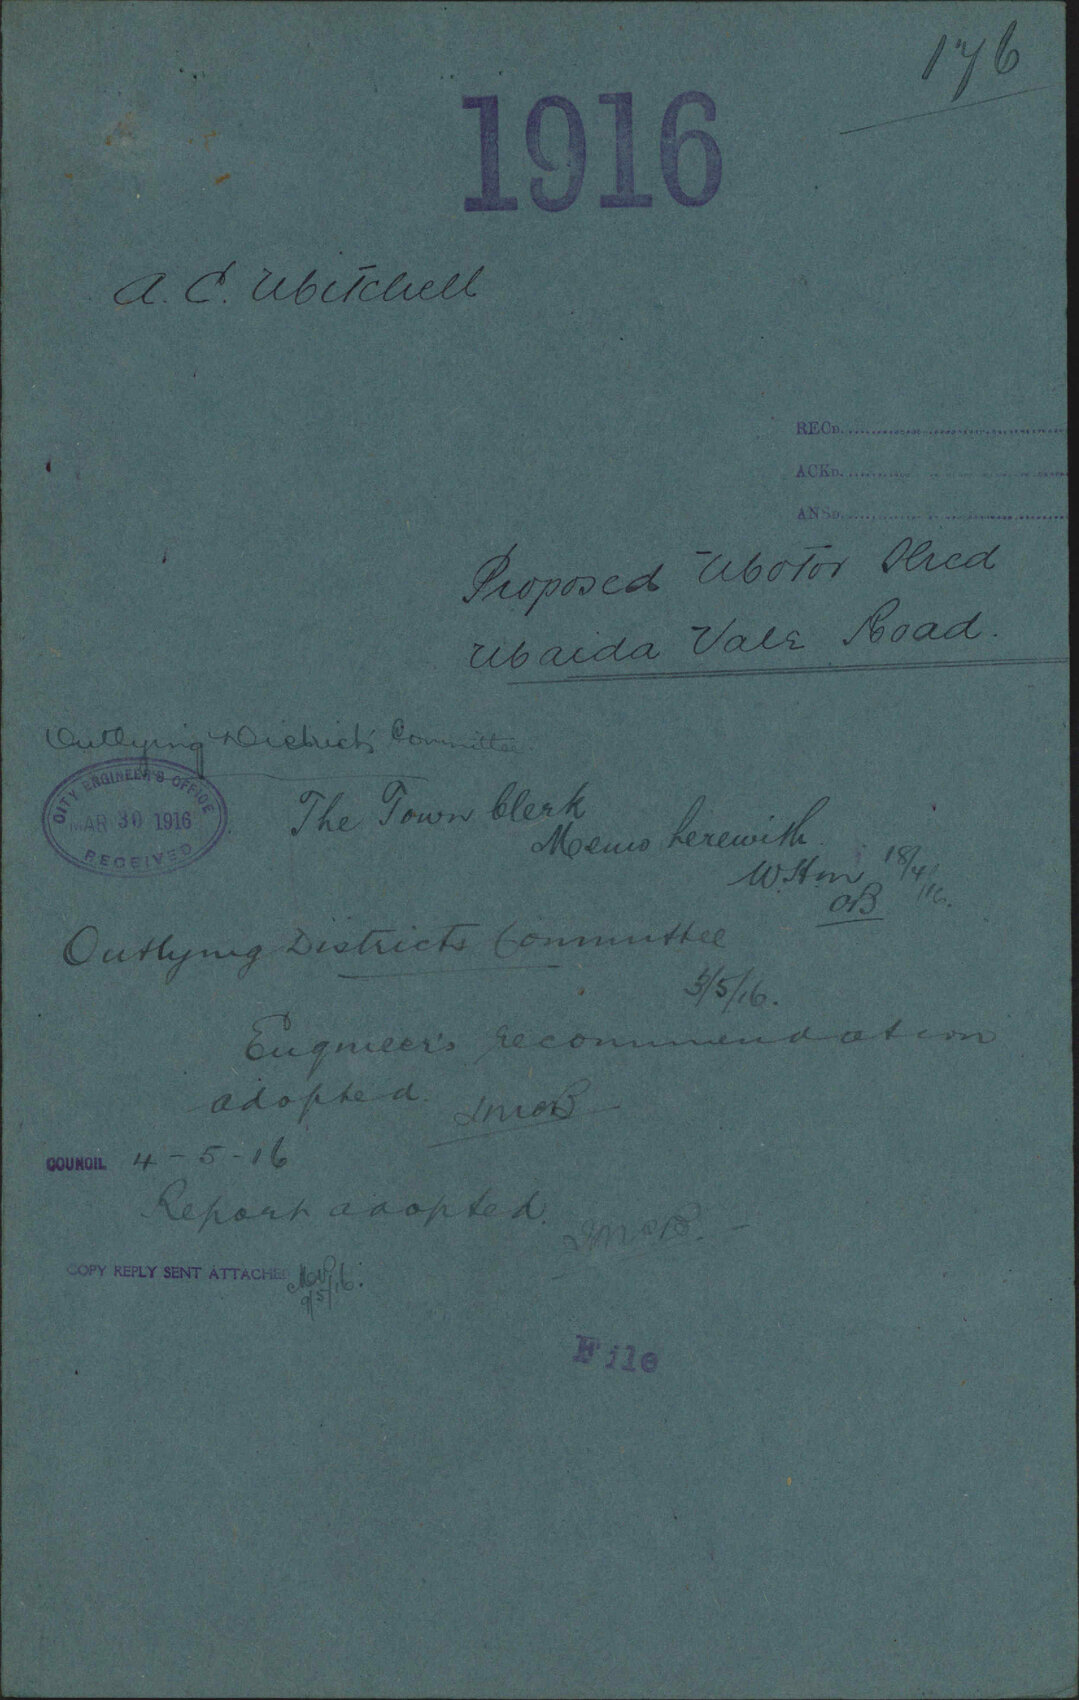 176
1916
A. C. Mitchell
RECD.
ACKD.
ANSD.
Proposed Motor Shed
Maida Vale Road.
Outlying Districts Committee
CITY ENGINEER'S OFFICE
MAR 30 1916
RECEIVED
The Town Clerk
Memo herewith.
W.H.M. 18/4/16.
OB
Outlying Districts Committee
3/5/16.
Engineer's recommendation
adopted.
COUNCIL 4-5-16
Report adopted.
COPY REPLY SENT ATTACHED
9/5/16.
File